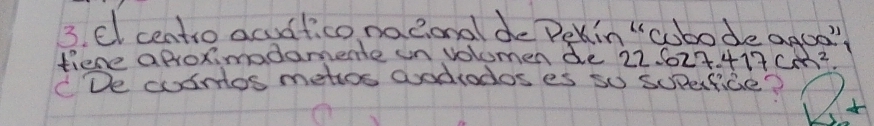 3. El centro acuático nacional de Pekín "cubo de agua",
tiene aproximadamente un volumen de 22.627.417 cm².
¿De cuántos metros cuadrados es su superficie?
R+